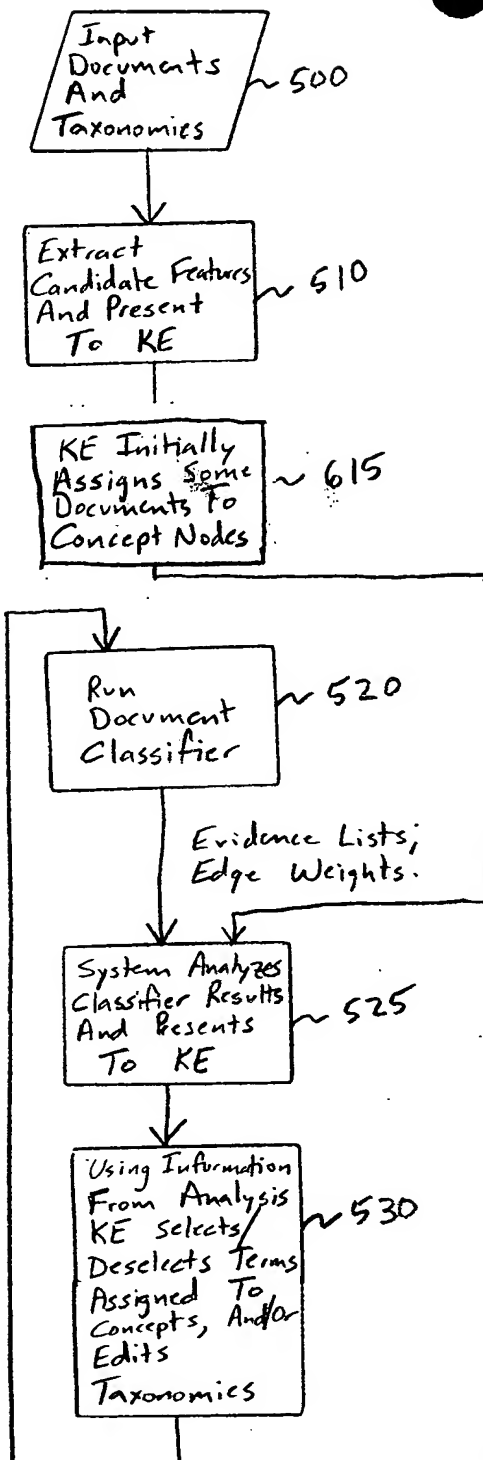 Input
Documents
And
Taxonomies
~ 500
Extract
Candidate Features
And Present
To KE
~ 510
KE Initially
Assigns Some
Documents To
Concept Nodes
~ 615
Run
Document
Classifier
~ 520
Evidence Lists;
Edge Weights.
System Analyzes
Classifier Results
And Presents
To KE
~ 525
Using Information
From Analysis
KE Selects/
Deselects Terms
Assigned To
Concepts, And/Or
Edits
Taxonomies
~ 530